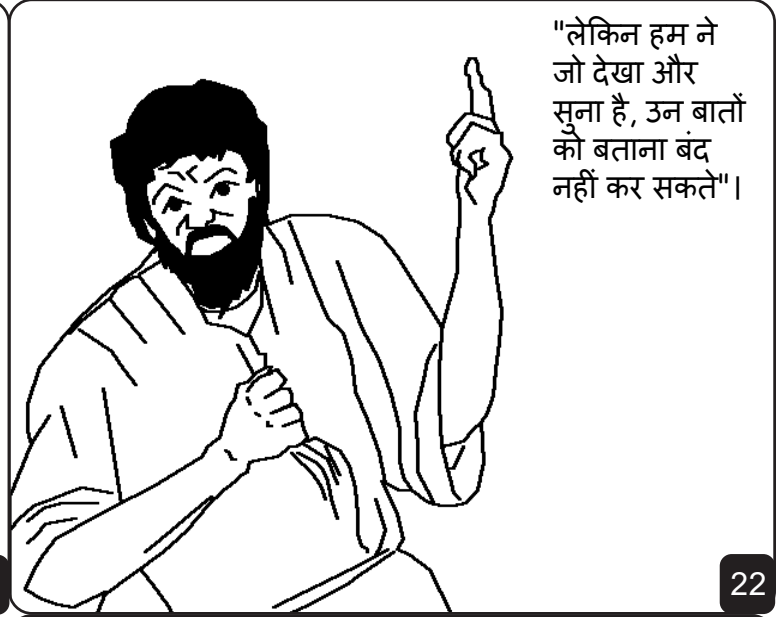 "लेकिन हम ने
जो देखा और
सुना है, उन बातों
को बताना बंद
नहीं कर सकते"।
22